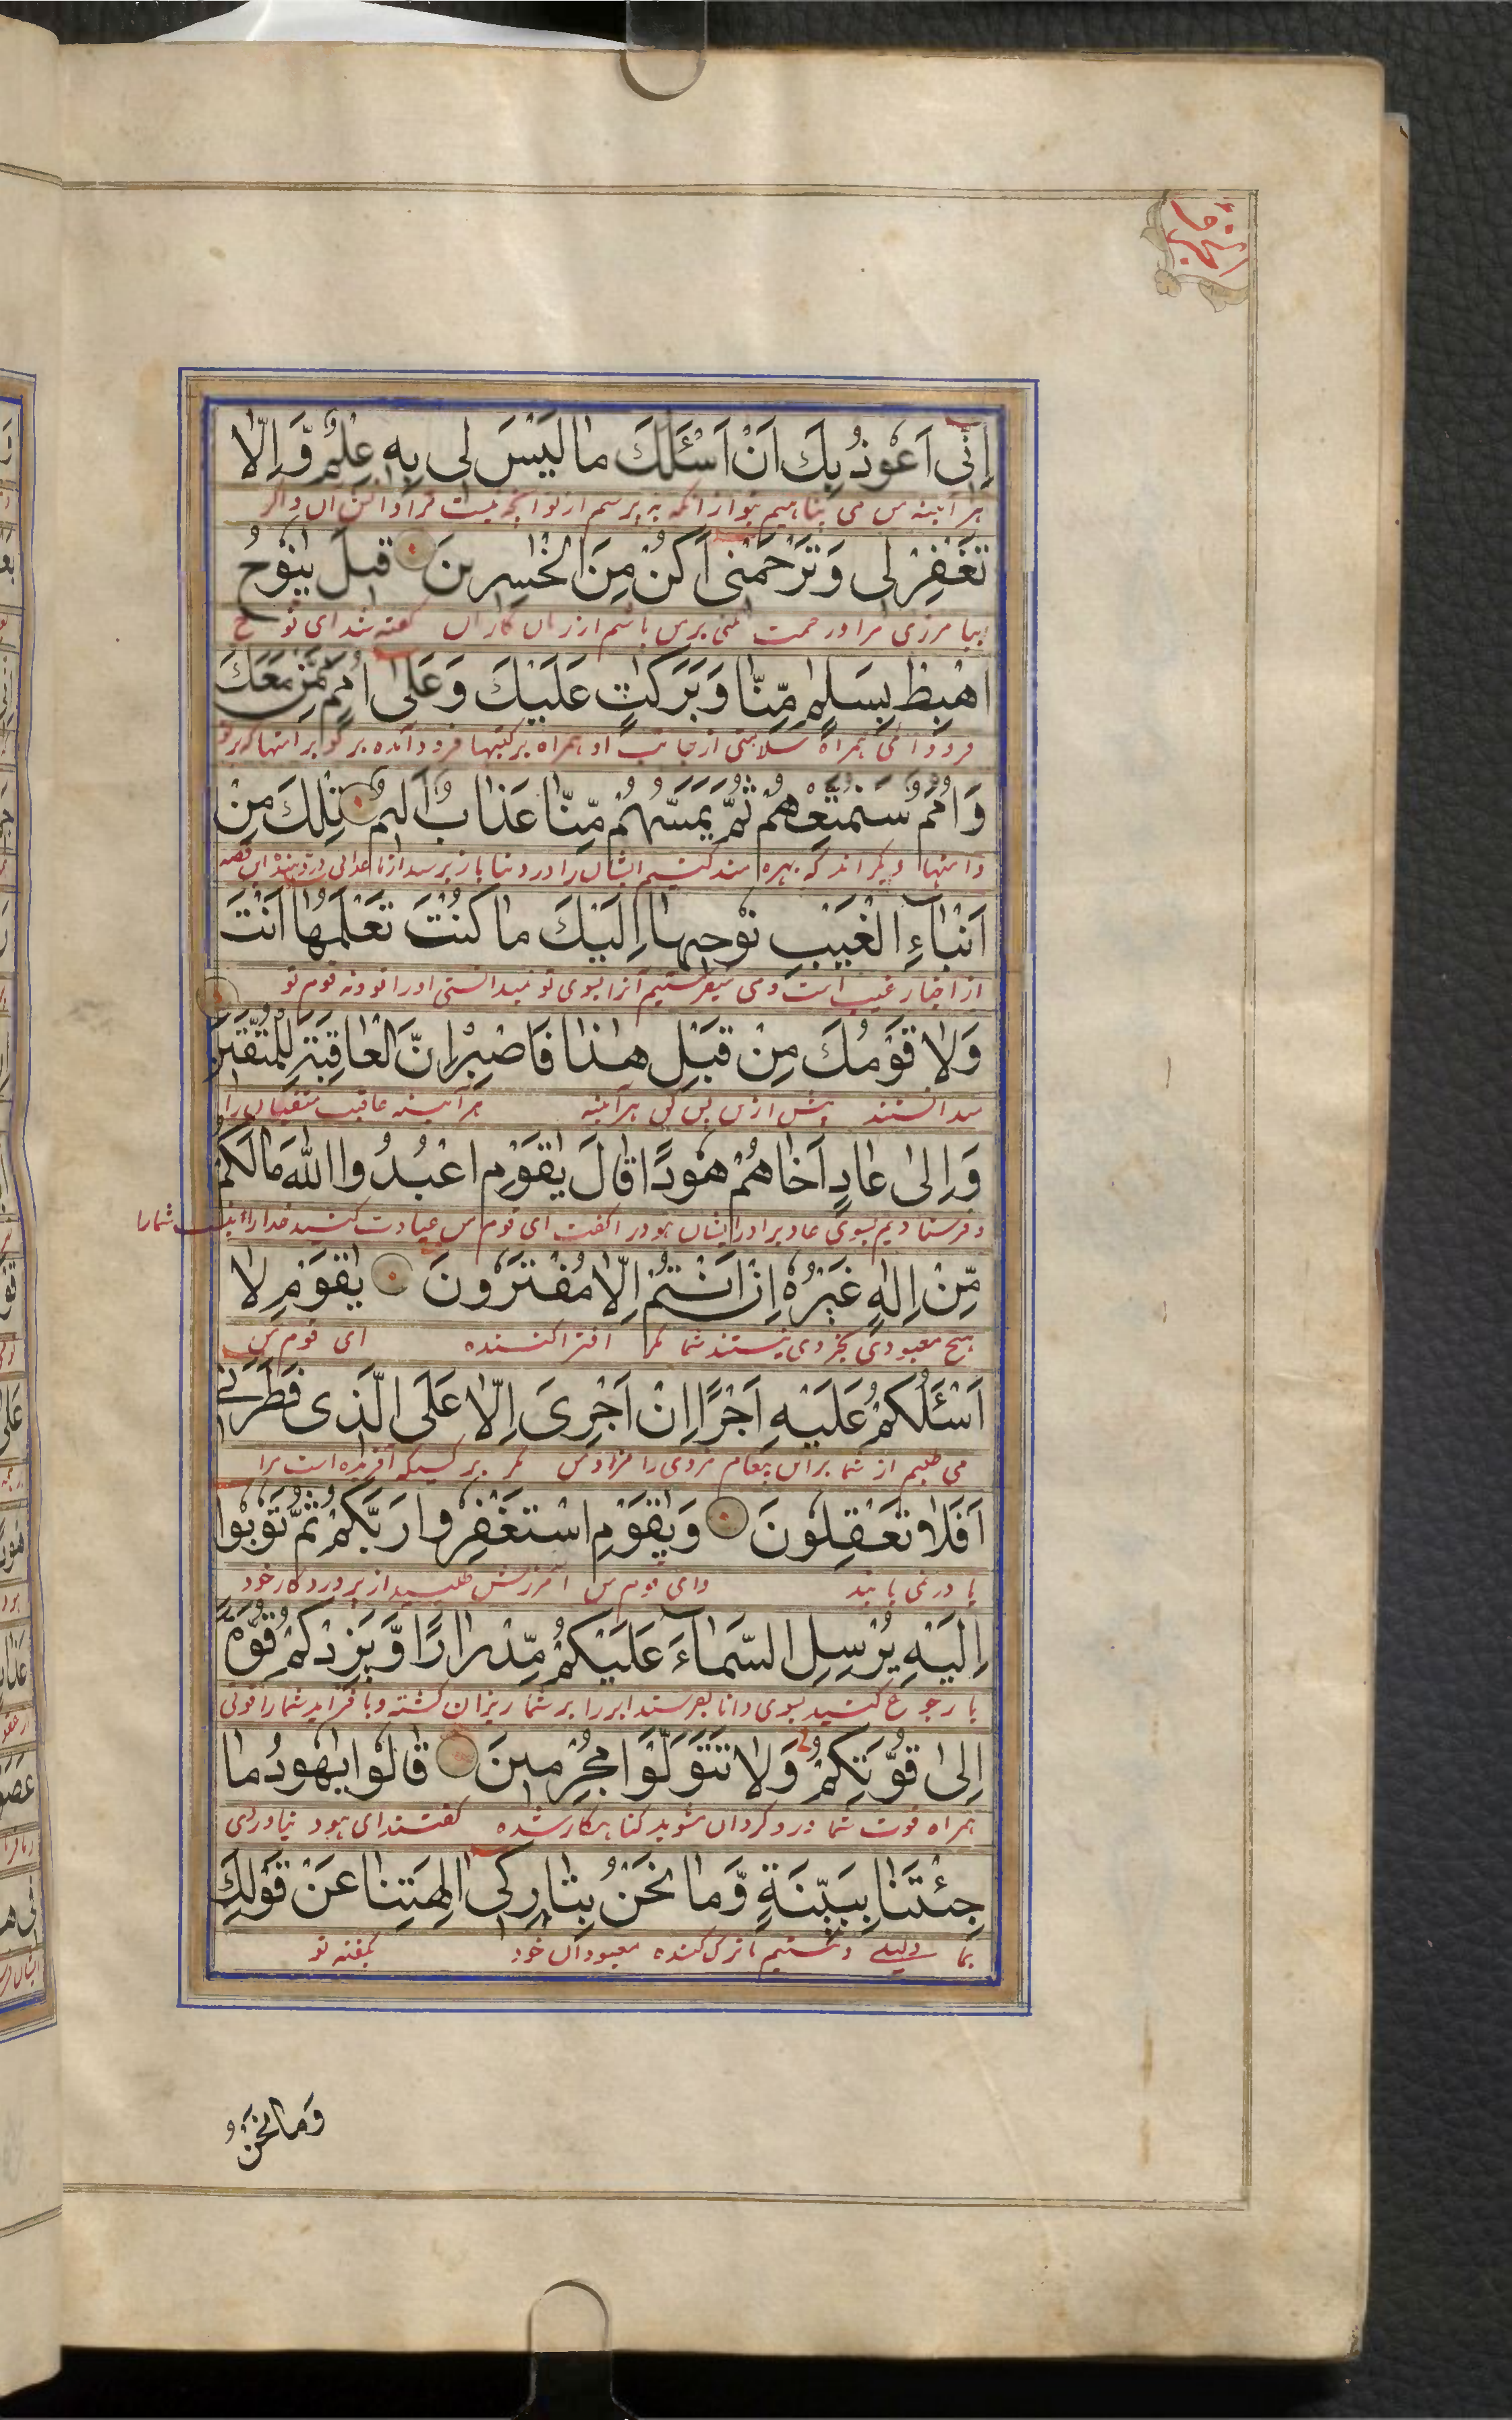 اِنّی اَعوُذُ بِكَ اَنْ اَسْئَلَكَ مٰا لَیْسَ لی بِهِ عِلْمٌ وَّ اِلّا
هر آینه من می پناهیم بتو از آنکه به پرسم از تو آنچه نیست مرا دانش آن و اگر
تَغْفِرْ لی وَ تَرْحَمْنی اَكُنْ مِنَ الْخٰسِرینَ قیلَ یٰنُوحُ
بیامرزی مرا و رحمت کنی بر من باشم از زیان کاران گفته شد ای نوح
اهْبِطْ بِسَلٰمٍ مِّنّٰا وَ بَرَكٰتٍ عَلَیْكَ وَ عَلٰی اُمَمٍ مِّمَّنْ مَعَكَ
فرود آئی همراه سلامتی از جانب او همراه برکتها فرود آمده بر تو بر امتها که بر تو
وَ اُمَمٌ سَنُمَتِّعُهُمْ ثُمَّ یَمَسُّهُمْ مِّنّٰا عَذٰابٌ اَلیمٌ تِلْكَ مِنْ
و امتها دیگر اند که بهره مند کنیم ایشان را در دنیا باز برسد از ما عذابی این قصه
اَنْبٰآءِ الْغَیْبِ نُوحیهٰا اِلَیْكَ مٰا كُنْتَ تَعْلَمُهٰا اَنْتَ
از اخبار غیب است و می آنرا بسوی تو نمیدانستی او را تو و نه قوم تو
وَ لٰا قَوْمُكَ مِنْ قَبْلِ هٰذٰا فَاصْبِرْ اِنَّ الْعٰاقِبَةَ لِلْمُتَّقینَ
میدانستند پیش از این هر آینه هر آینه عاقبت متقیان را
وَ اِلٰی عٰادٍ اَخٰاهُمْ هُودًا قٰالَ یٰقَوْمِ اعْبُدُوا اللّٰهَ مٰا لَكُمْ
و فرستادیم بسوی عاد برادر ایشان هود را گفت ای قوم من عبادت کنید خدا را نیست شما را
مِّنْ اِلٰهٍ غَیْرُهُ اِنْ اَنْتُمْ اِلّٰا مُفْتَرُونَ یٰقَوْمِ لٰا
هیچ معبودی بجز وی نیستند شما مگر افترا کننده ای قوم من
اَسْئَلُكُمْ عَلَیْهِ اَجْرًا اِنْ اَجْرِیَ اِلّٰا عَلَی الَّذی فَطَرَنی
می طلبم از شما بر این پیغام مزدی را مزد من مگر بر کسیکه آفریده است مرا
اَفَلٰا تَعْقِلُونَ وَ یٰقَوْمِ اسْتَغْفِرُوا رَبَّكُمْ ثُمَّ تُوبُوا
یا در نمی یابند و ای قوم من آمرزش طلبید از پروردگار خود
اِلَیْهِ یُرْسِلِ السَّمٰآءَ عَلَیْكُمْ مِّدْرٰارًا وَّ یَزِدْكُمْ قُوَّةً
با رجوع کنید بسوی وانا بفرستد ابر را بر شما ریزان گشته و با فزاید شما را قوتی
اِلٰی قُوَّتِكُمْ وَ لٰا تَتَوَلَّوْا مُجْرِمینَ قٰالُوا یٰهُودُ مٰا
همراه قوت شما و رو گردان مشوید گناهکار شده گفتند ای هود نیاوردی
جِئْتَنٰا بِبَیِّنَةٍ وَّ مٰا نَحْنُ بِتٰارِكی اٰلِهَتِنٰا عَنْ قَوْلِكَ
بما دلیلی و نیستیم ما ترک کننده معبودان خود بگفته تو
وَ مٰا نَحْنُ